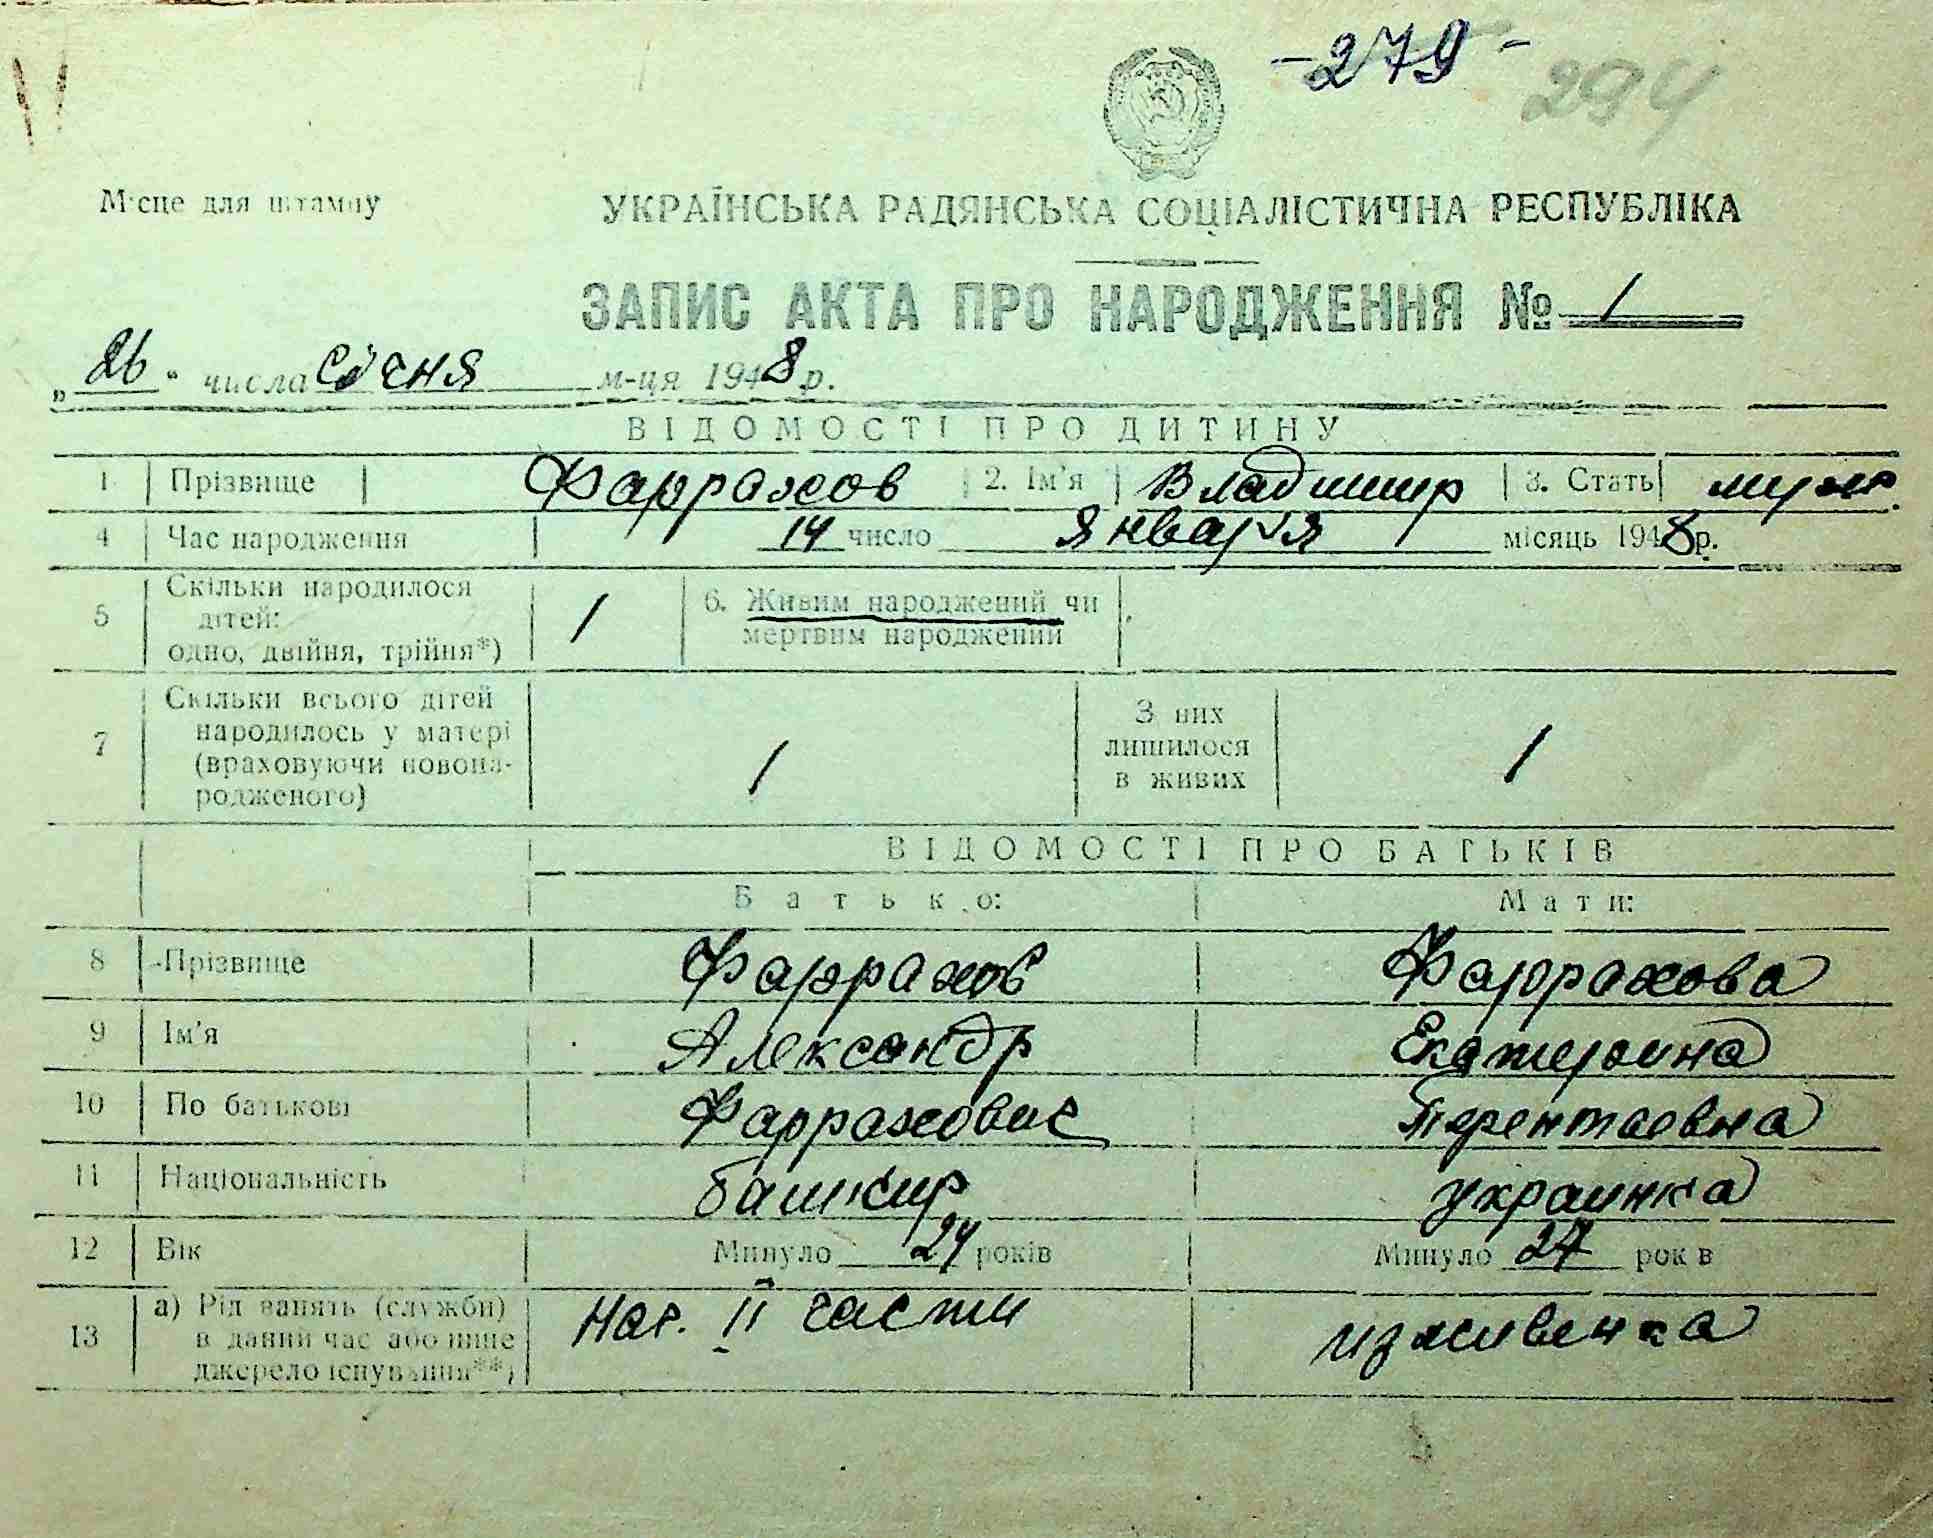 -279-
294
Місце для штампу
УКРАЇНСЬКА РАДЯНСЬКА СОЦІАЛІСТИЧНА РЕСПУБЛІКА
ЗАПИС АКТА ПРО НАРОДЖЕННЯ № 1
„26“ числа січня м-ця 1948 р.
ВІДОМОСТІ ПРО ДИТИНУ
1 Прізвище Фаррахов 2. Ім'я Владимир 3. Стать муж.
4 Час народження 14 число января місяць 1948 р.
5 Скільки народилося дітей: одно, двійня, трійня*) 1 6. Живим народжений чи мертвим народжений
7 Скільки всього дітей народилось у матері (враховуючи новонародженого) 1 З них лишилося в живих 1
ВІДОМОСТІ ПРО БАТЬКІВ
Батько: Мати:
8 Прізвище Фаррахов Фаррахова
9 Ім'я Александр Екатерина
10 По батькові Фаррахович Терентьевна
11 Національність башкир украинка
12 Вік Минуло 24 років Минуло 27 років
13 а) Рід занять (служби) в даний час або інше джерело існування**) Нач. II части иждивенка